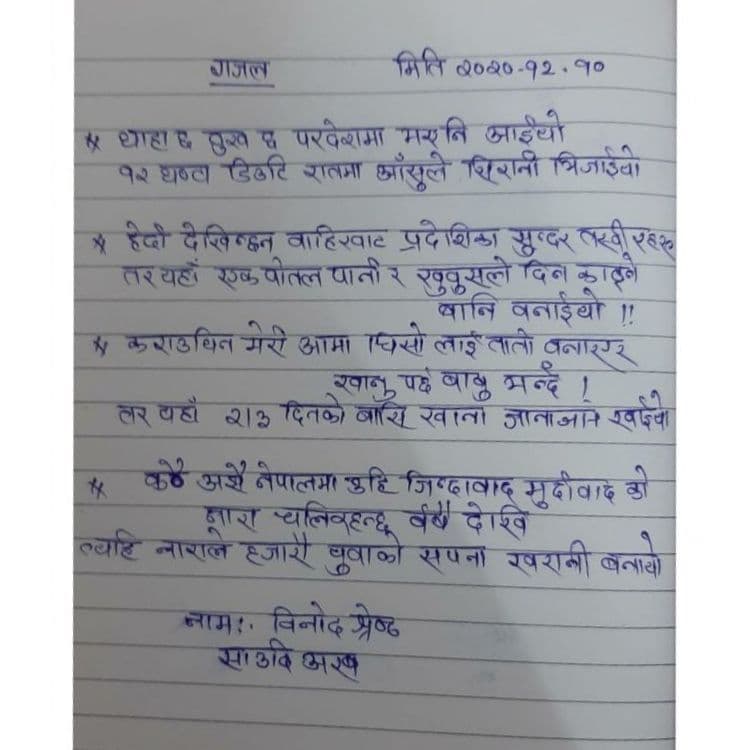 गजल मिति २०२०-१२.१०
* थाहा छ दुख छ परदेशमा मरुनि आईयो
१२ घण्टा डिउटि रातमा आँसुले सिरानी भिजाईयो
* हेर्दा देखिन्छन बाहिरबाट प्रदेशिका सुन्दर तस्वीरहरु
तर यहाँ एक बोतल पानी र खुबुसले दिन काट्ने
बानि बनाईयो !!
* कराउथिन मेरी आमा चिसो लाई तातो बनाएर
खानु पर्छ बाबु भन्दै !
तर यहाँ २/३ दिनको बासि खाना जानाजान खाईयो
* कठै अझै नेपालमा उहि जिन्दावाद मुर्दावाद को
नारा चलिरहन्छ वर्षौ देखि
त्यहि नाराले हजारौ युवाको सपना खरानी बनायो
नाम:. विनोद श्रेष्ठ
साउदि अरब